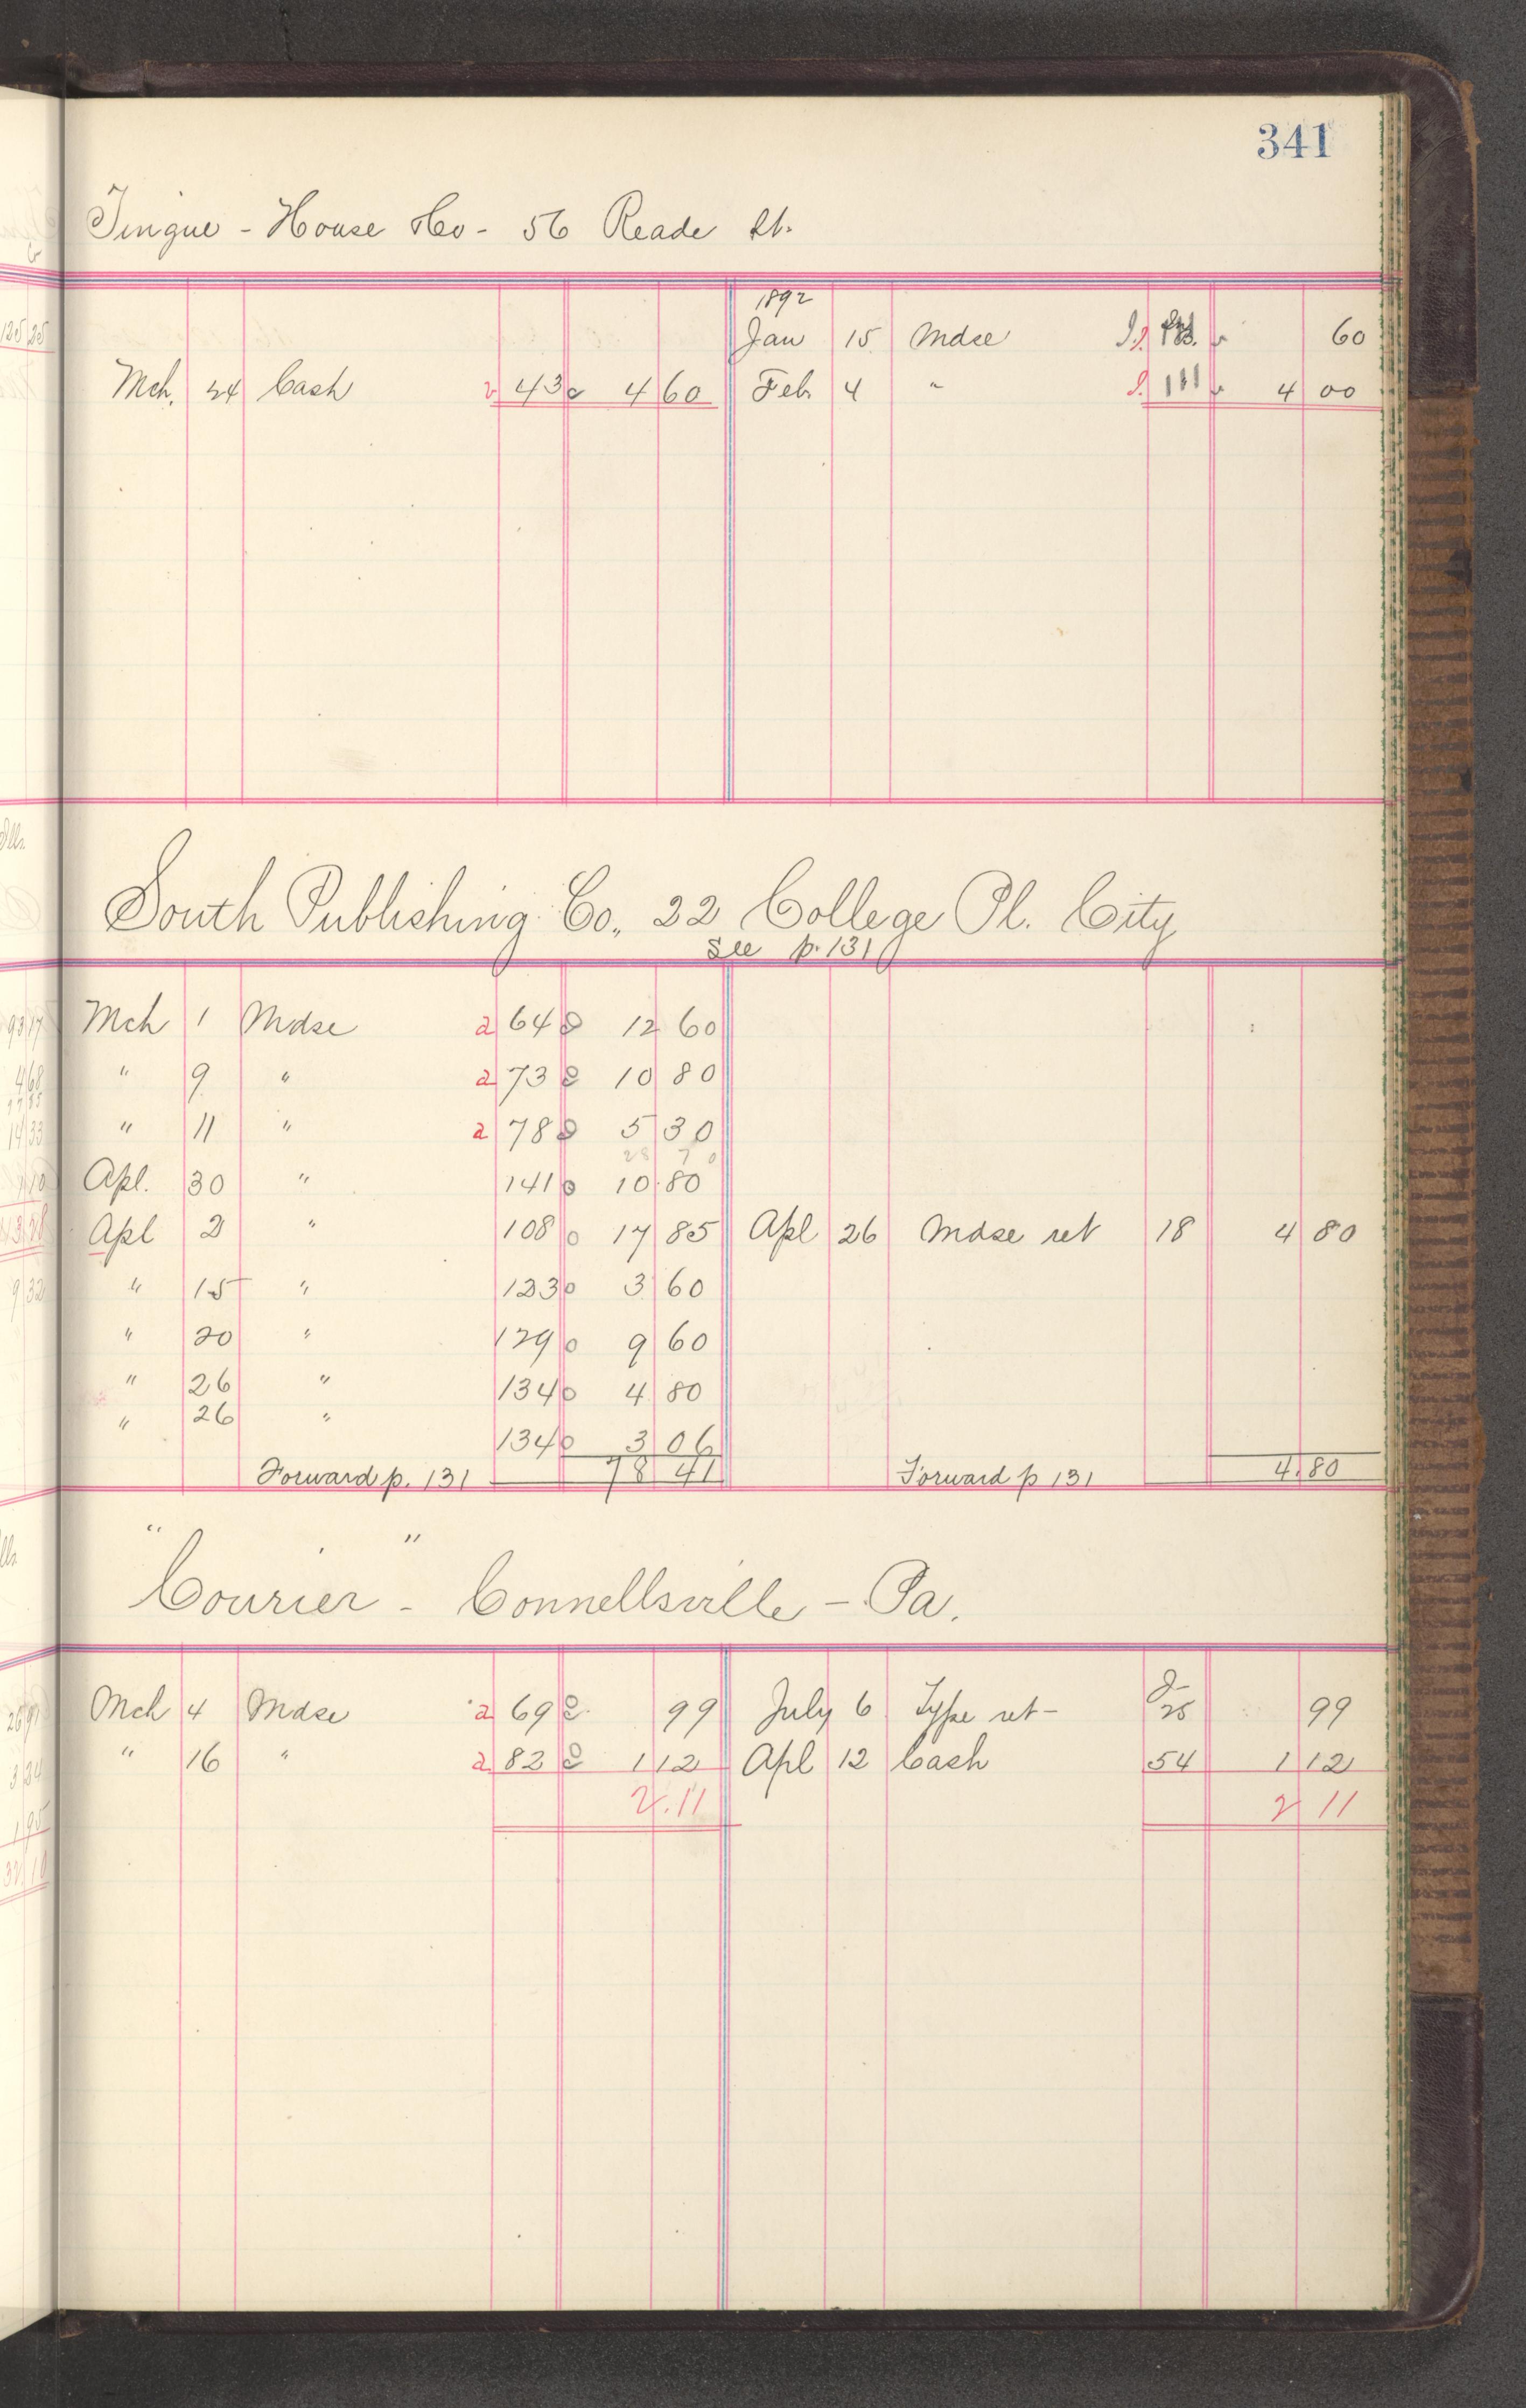 341
Tingue - House Co - 56 Reade St.
1892
Jan 15 Mdse 60
Mch. 24 Cash 43 4 60 Feb 4 " 111 4 00
South Publishing Co., 22 College Pl. City
see p. 131
Mch 1 Mdse 2 64 12 60
" 9 " 2 73 10 80
" 11 " 2 78 5 30
28 70
Apl. 30 " 141 10 80
Apl 2 " 108 17 85 Apl 26 Mdse ret 18 4 80
" 15 " 123 3 60
" 20 " 129 9 60
" 26 " 134 4 80
" 26 " 134 3 06
Forward p. 131 78 41 Forward p 131 4.80
"Courier" - Connellsville - Pa.
Mch 4 Mdse 2 69 99 July 6 Type ret - 25 99
" 16 " 2 82 1 12 Apl 12 Cash 54 1 12
2.11 2 11